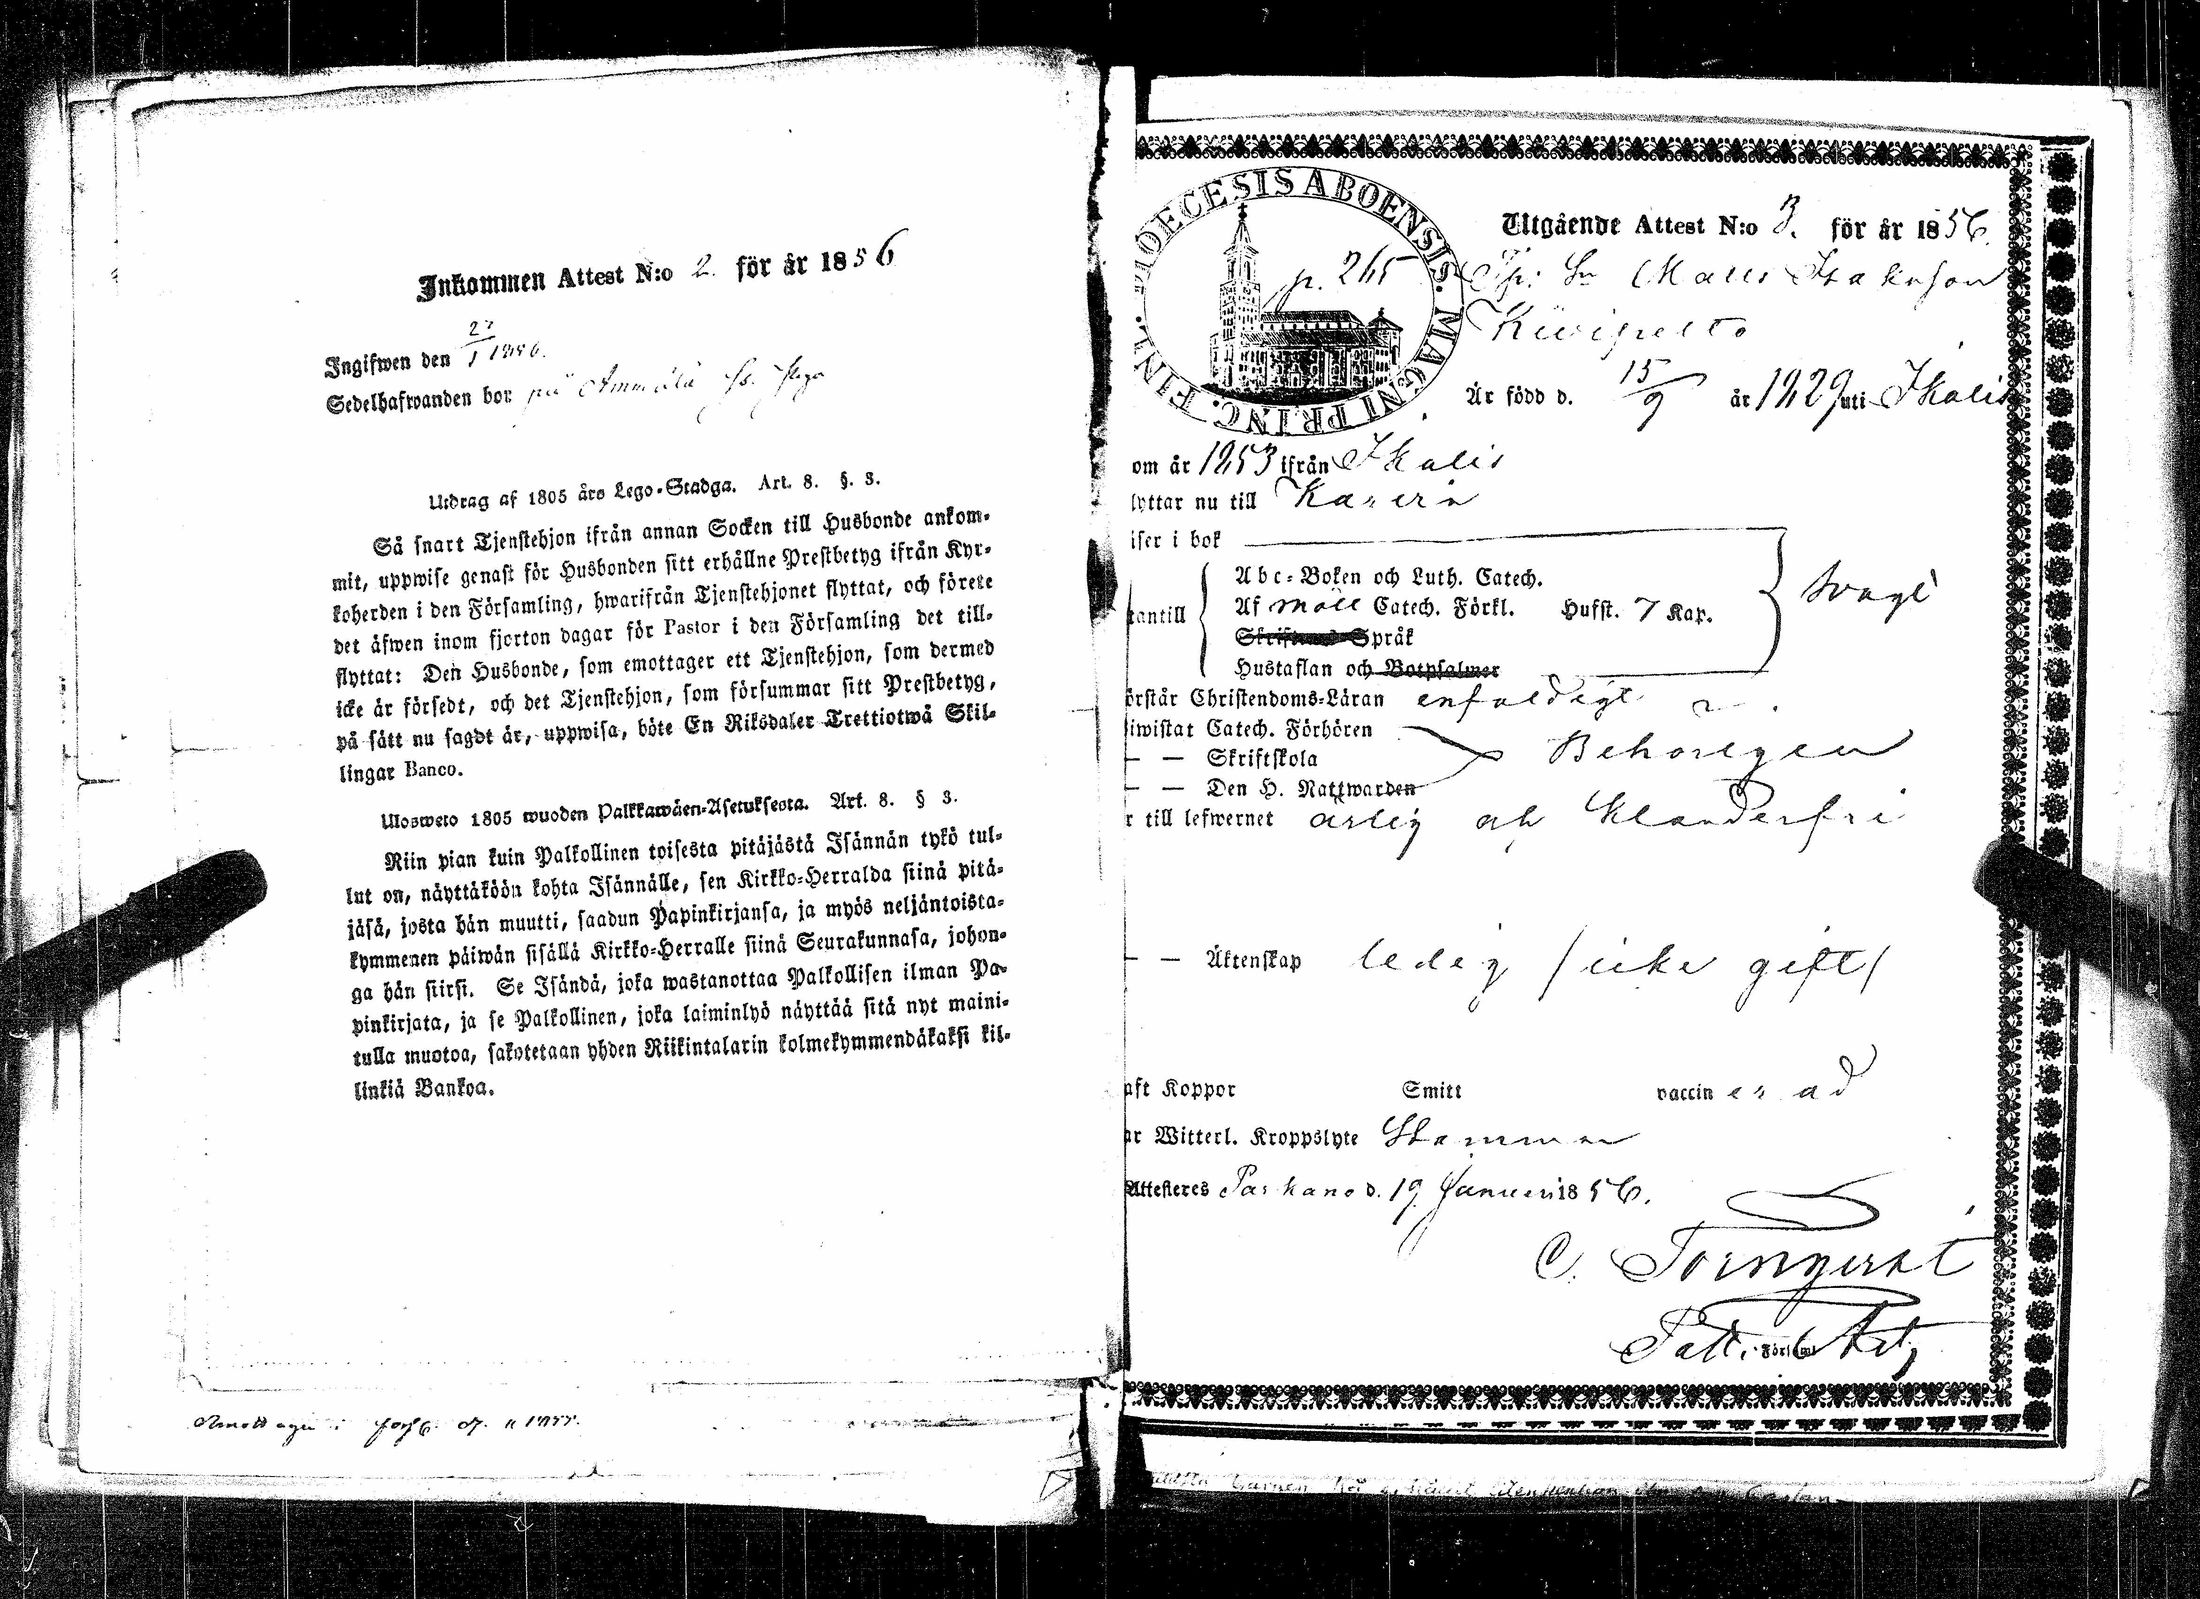 Inkommen Attest N:o 2. för år 1856
Ingifwen den 27/1 1856.
Sedelhafwanden bor på Ammälä
Utdrag af 1805 års Lego-Stadga. Art. 8. §. 3.
Så snart Tjenstehjon ifrån annan Socken till Husbonde ankom-
mit, uppwise genast för Husbonden sitt erhållne Prestbetyg ifrån Kyr-
koherden i den Församling, hwarifrån Tjenstehjonet flyttat, och förete
det äfwen inom fjorton dagar för Pastor i den Församling det till-
flyttat: Den Husbonde, som emottager ett Tjenstehjon, som dermed
icke är försedt, och det Tjenstehjon, som försummar sitt Prestbetyg,
på sätt nu sagdt är, uppwisa, böte En Riksdaler Trettiotwå Skil-
lingar Banco.
Ulosweto 1805 wuoden Palkkawäen-Asetuksesta. Art. 8. § 3.
Niin pian kuin Palkollinen toisesta pitäjästä Isännän tykö tul-
lut on, näyttäköön kohta Isännälle, sen Kirkko-Herralda siinä pitä-
jäsä, josta hän muutti, saadun Papinkirjansa, ja myös neljäntoista-
kymmenen päiwän sisällä Kirkko-Herralle siinä Seurakunnasa, johon-
ga hän siirsi. Se Isändä, joka wastanottaa Palkollisen ilman Pa-
pinkirjata, ja se Palkollinen, joka laiminlyö näyttää sitä nyt maini-
tulla muotoa, sakotetaan yhden Riikintalarin kolmekymmendäkaksi kil-
linkiä Bankoa.
DIOECESIS ABOENSIS. MAGNI PRINC. FINL.
p. 265
Utgående Attest N:o 3. för år 1856.
Matts Isaksson
Kiwipelto
Är född d. 15/9 år 1829 uti Ikalis
om år 1853 ifrån Ikalis
lyttar nu till
iser i bok
Abc-Boken och Luth. Catech.
Af Möll Catech. Förkl. Husst. 7 Kap.
tantill
svagt
Språk
Hustaflan och Botpsalmer
örstår Christendoms-Läran enfaldigt
iwistat Catech. Förhören
— — Skriftskola
Behörigen
— — Den H. Nattwarden
r till lefwernet ärlig och klanderfri
— — Äktenskap ledig /icke gift/
aft Koppor Smitt vaccinerad
ar Witterl. Kroppslyte Stammar
Attesteres Parkano d. 19 Januari 1856.
C. Törnqvist
Församl